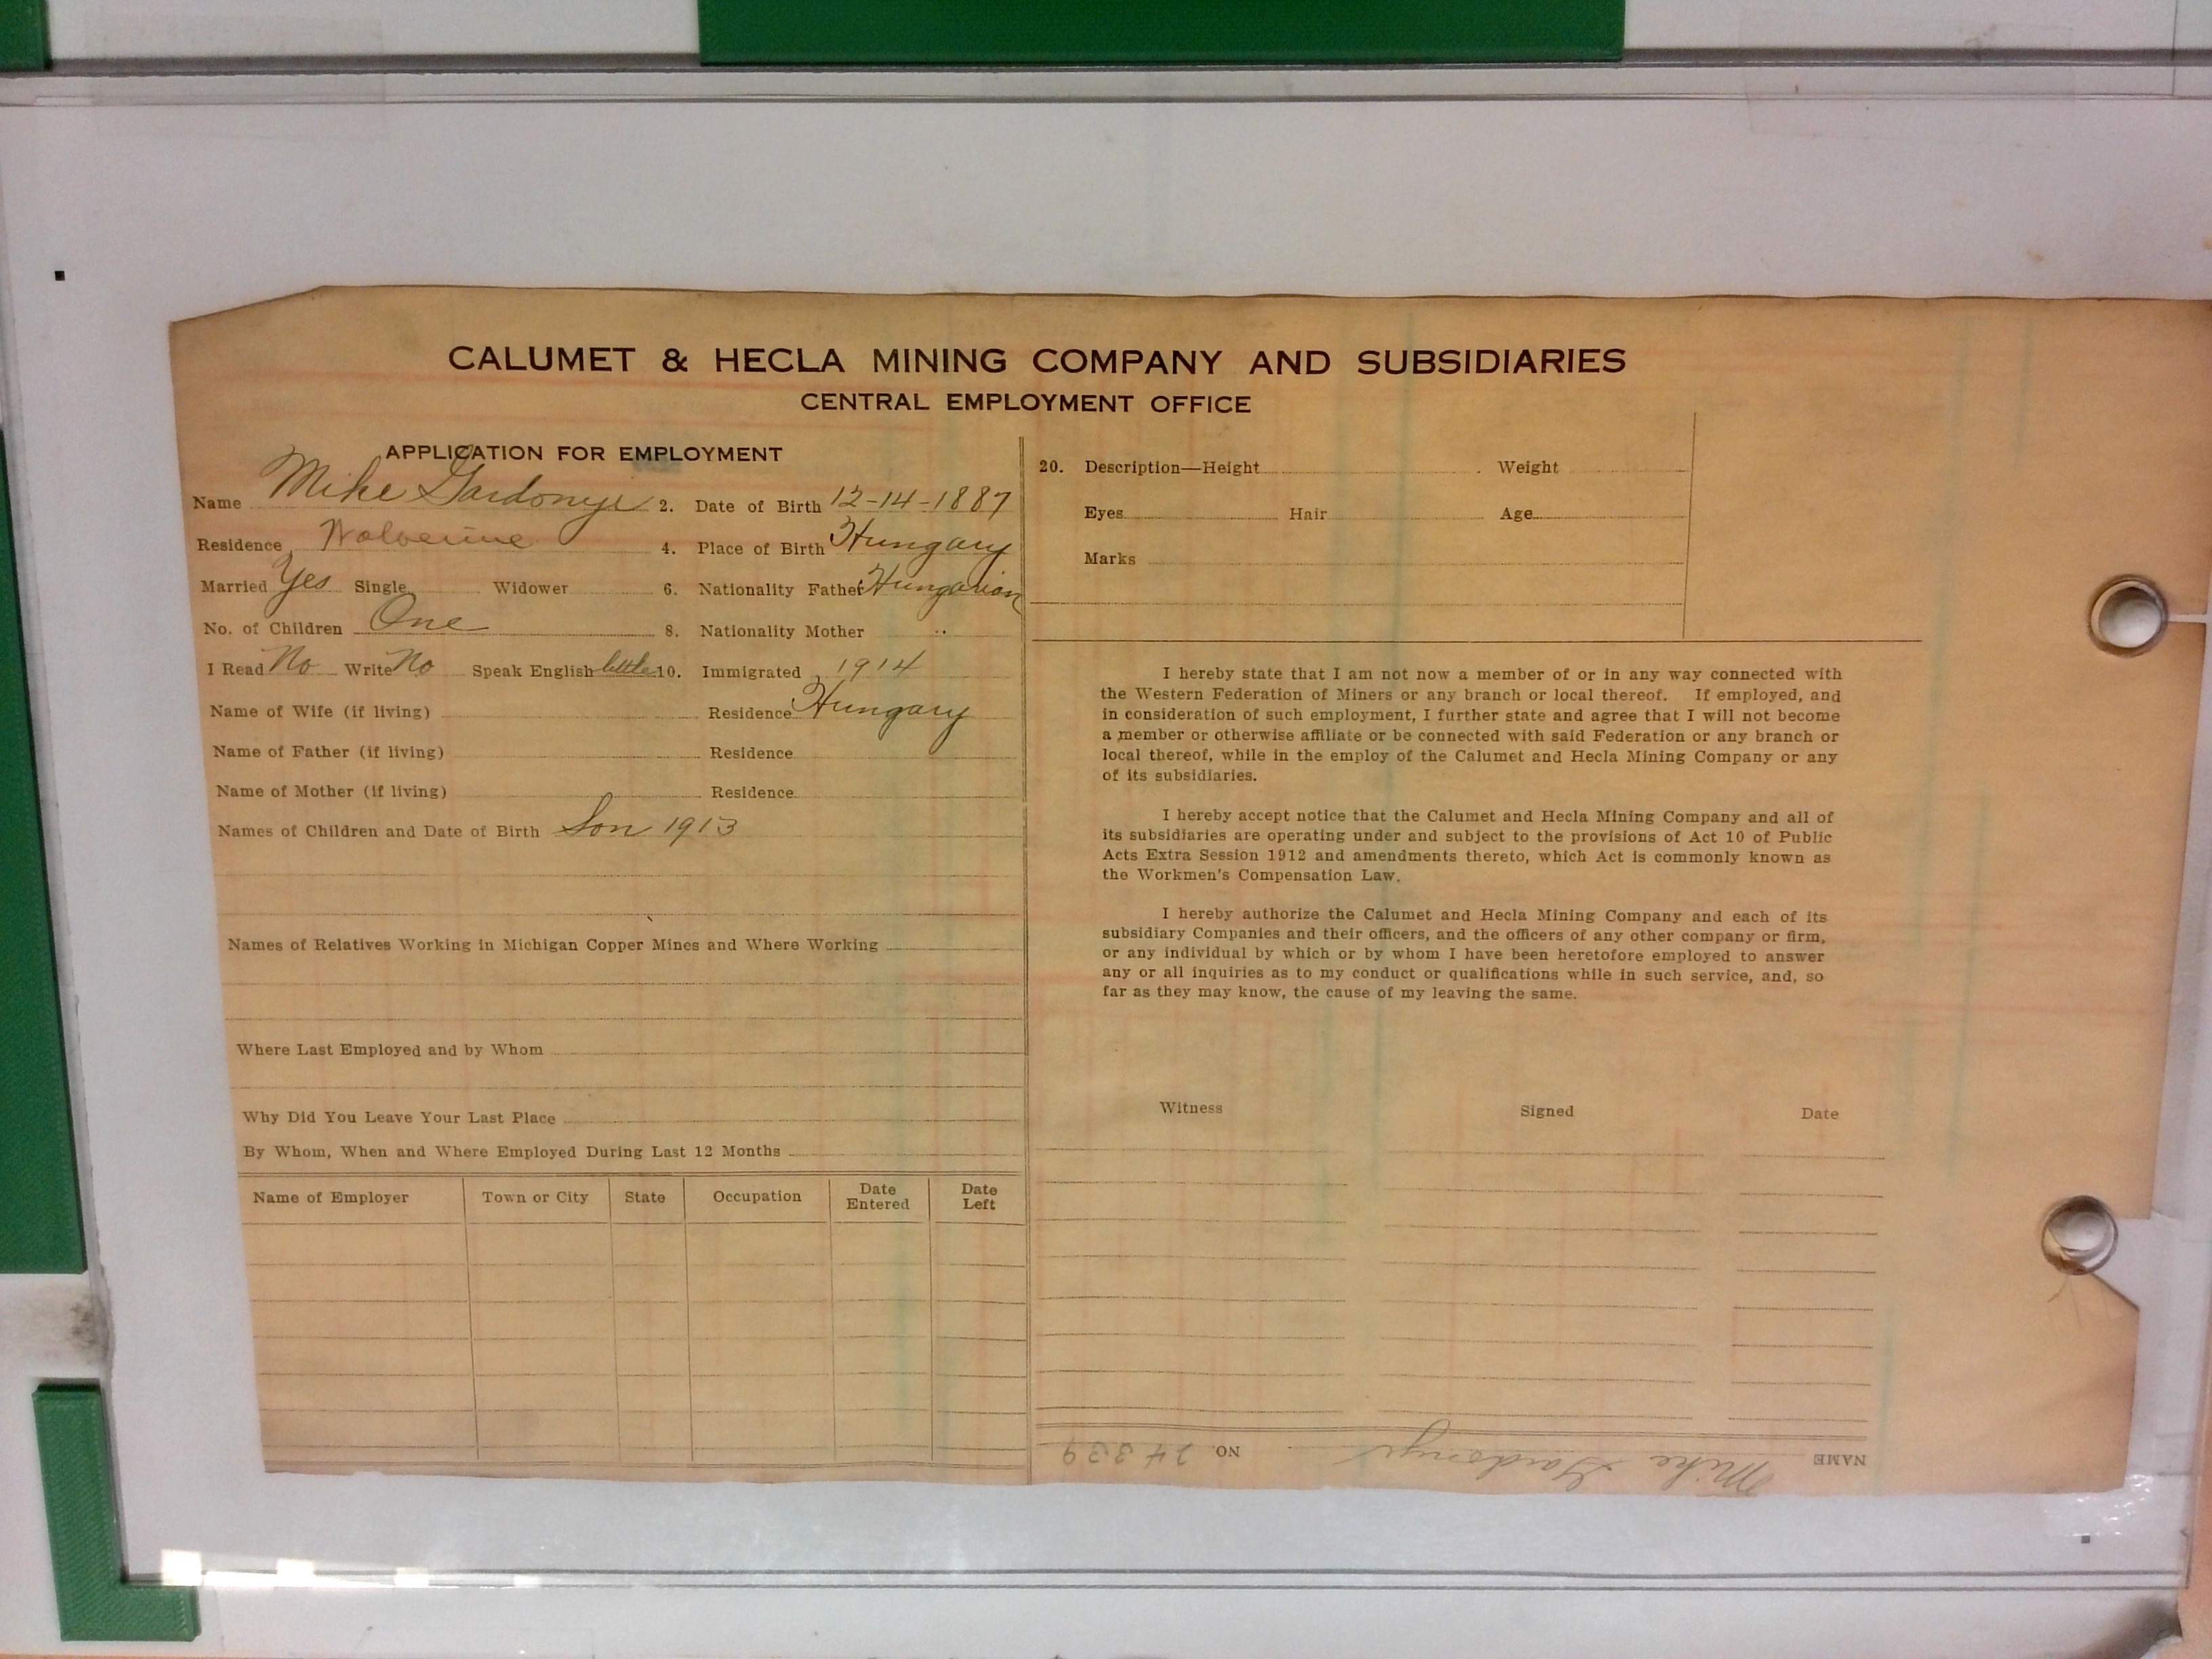 CALUMET & HECLA MINING COMPANY AND SUBSIDIARIES
CENTRAL EMPLOYMENT OFFICE
APPLICATION FOR EMPLOYMENT
Name Mike Gardonyi 2. Date of Birth 12-14-1887
Residence Wolverine 4. Place of Birth Hungary
Married Yes Single Widower 6. Nationality Father Hungarian
No. of Children One 8. Nationality Mother "
I Read No Write No Speak English little 10. Immigrated 1914
Name of Wife (if living) Residence Hungary
Name of Father (if living) Residence
Name of Mother (if living) Residence
Names of Children and Date of Birth Son 1913
Names of Relatives Working in Michigan Copper Mines and Where Working
Where Last Employed and by Whom
Why Did You Leave Your Last Place
By Whom, When and Where Employed During Last 12 Months
Name of Employer Town or City State Occupation Date Entered Date Left
20. Description—Height Weight
Eyes Hair Age
Marks
I hereby state that I am not now a member of or in any way connected with
the Western Federation of Miners or any branch or local thereof. If employed, and
in consideration of such employment, I further state and agree that I will not become
a member or otherwise affiliate or be connected with said Federation or any branch or
local thereof, while in the employ of the Calumet and Hecla Mining Company or any
of its subsidiaries.
I hereby accept notice that the Calumet and Hecla Mining Company and all of
its subsidiaries are operating under and subject to the provisions of Act 10 of Public
Acts Extra Session 1912 and amendments thereto, which Act is commonly known as
the Workmen's Compensation Law.
I hereby authorize the Calumet and Hecla Mining Company and each of its
subsidiary Companies and their officers, and the officers of any other company or firm,
or any individual by which or by whom I have been heretofore employed to answer
any or all inquiries as to my conduct or qualifications while in such service, and, so
far as they may know, the cause of my leaving the same.
Witness Signed Date
NAME Mike Gardonyi NO. 24339